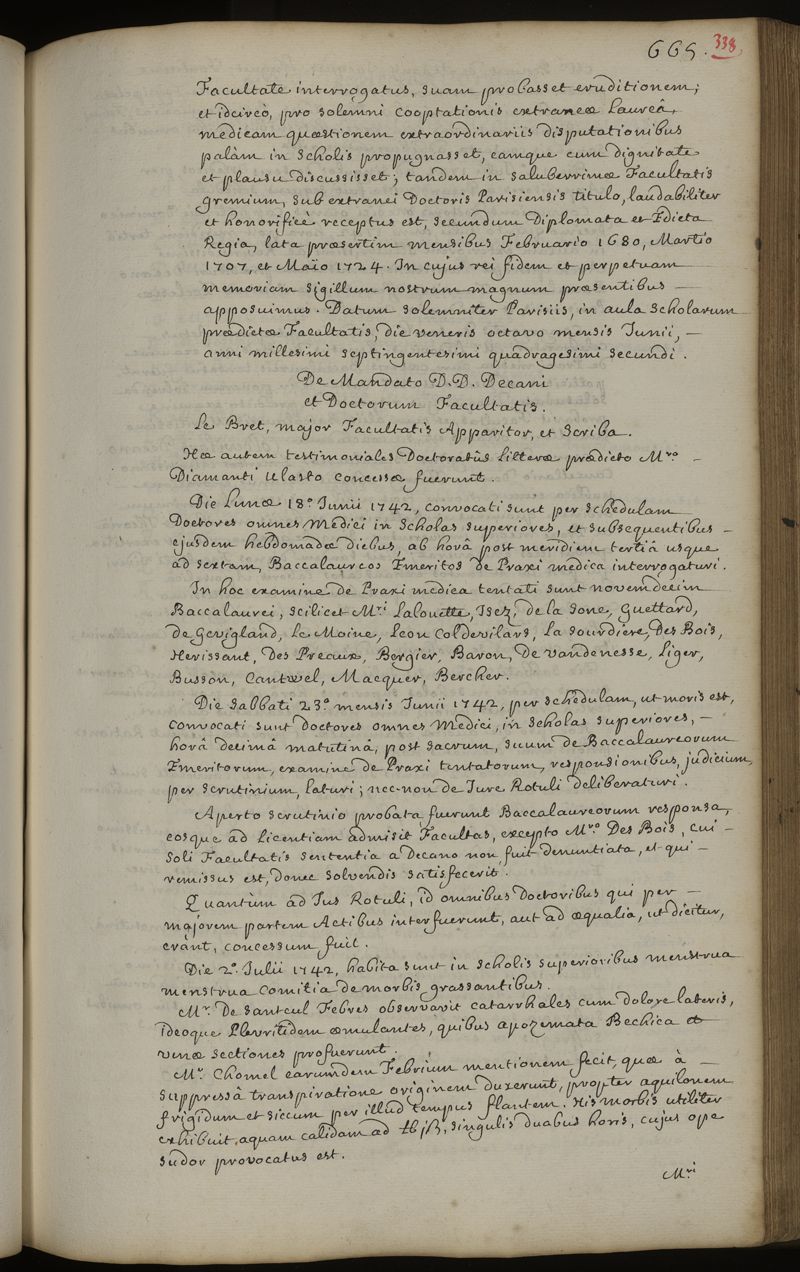 665. 338
Facultate interrogatus, suam probasset eruditionem;
et idcircò, pro solemni cooptationis extraneæ Laureâ,
medicam quæstionem extraordinariis disputationibus
palàm in scholis propugnasset, eamque cum dignitate
et plausu discussisset; tandem in saluberrimæ Facultatis
gremium, sub extranei Doctoris Parisiensis titulo, laudabiliter
et honorificè receptus est, secundum Diplomata et Edicta
Regia, lata præsertim mensibus Februario 1680, Martio
1707, et Maïo 1724. In cujus rei fidem et perpetuam
memoriam sigillum nostrum magnum præsentibus —
apposuimus. Datum solemniter Parisiis, in aula Scholarum
prædictæ Facultatis, die veneris octavo mensis Junii, —
anni millesimi septingentesimi quadragesimi secundi.
De Mandato D.D. Decani
et Doctorum Facultatis.
Le Bret, major Facultatis Apparitor, et Scriba.
Hæ autem testimoniales Doctoratûs Litteræ prædicto Mro. —
Diamanti Ulasto concessæ fuerunt.
Die Lunæ 18ª Junii 1742, convocati sunt per schedulam
Doctores omnes Medici in Scholas superiores, et subsequentibus —
ejusdem hebdomadæ diebus, ab horâ post meridiem tertiâ usque
ad sextam, Baccalaureos Emeritos de Praxi medica interrogaturi.
In hoc examine de Praxi medica tentati sunt novemdecim
Baccalaurei, scilicet Mri. Lalouette, Isez, de la Sone, Guettard,
de Gevigland, Le Moine, Leon Coldevilars, La Sourdiere, Des Bois,
Herissant, Des Precaux, Bergier, Baron, De Vandenesse, Liger,
Busson, Cantwel, Macquer, Bercher.
Die Sabbati 23ª. mensis Junii 1742, per schedulam, ut moris est,
convocati sunt Doctores omnes Medici, in Scholas superiores, —
horâ decimâ matutinâ, post sacrum, suum de Baccalaureorum
Emeritorum, examine de Praxi tentatorum, responsionibus, judicium,
per scrutinium, laturi; nec-non de Jure Rotuli deliberaturi.
Aperto scrutinio probata fuerunt Baccalaureorum responsa,
eosque ad Licentiam admisit Facultas, excepto Mro. Des Bois, cui —
soli Facultatis sententia a Decano non fuit denuntiata, et qui —
remissus est, donec solvendis satisfecerit.
Quantùm ad Jus Rotuli, id omnibus Doctoribus qui per —
majorem partem Actibus interfuerunt, aut ad æqualia, ut dicitur,
erant, concessum fuit.
Die 2ª. Julii 1742, habita sunt in Scholis superioribus menstrua
menstrua Comitia de morbis grassantibus.
Mr. De Santeul Febres observavit catarrhales cum dolore lateris,
ideoque Pleuritidem æmulantes, quibus apozemata Bechica et
venæ sectiones profuerunt.
Mr. Chomel earumdem Febrium mentionem fecit, quæ à —
suppressâ transpiratione originem duxerunt, propter aquilonem
frigidum et siccum per illud tempus flantem. His morbis utiliter
exhibuit aquam calidam ad ℔jß, singulis duabus horis, cujus ope
sudor provocatus est.
Mri